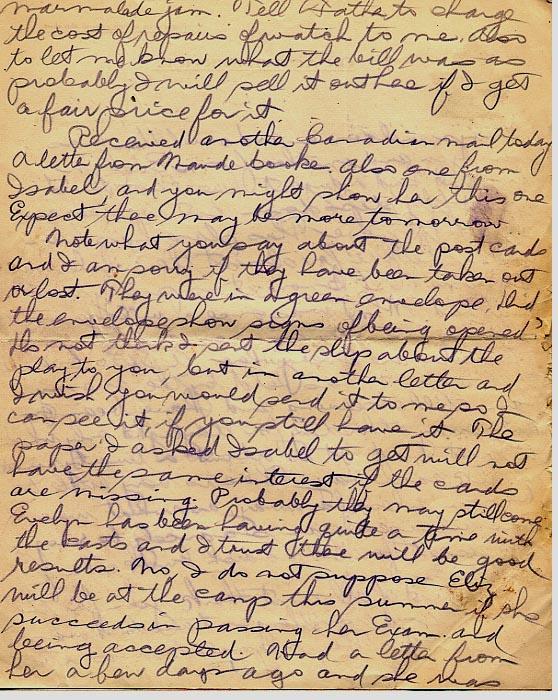 marmalade jam. Tell Father to charge
the cost of repairs of watch to me. Also
to let me know what the bill was as
probably I will sell it out here if I get
a fair price for it.
Received another Canadian mail today
a letter from Maude Cooke. also one from
Isabel, and you might show her this one
Expect there may be more tomorrow
Note what you say about the post cards
and I am sorry if they have been taken out
or lost. They were in a green envelope. Did
the envelope show signs of being opened?
Do not think I sent the slip about the
play to you, but in another letter and
I wish you would send it to me so I
can see it if you still have it. The
paper I asked Isabel to get will not
have the same interest if the cards
are missing. Probably they may still come
Evelyn has been having quite a time with
the casts and I trust there will be good
results. No, I do not suppose
will be at the camp this summer if she
succeeds in passing her Exam. and
being accepted. Had a letter from
her a few days ago and she was